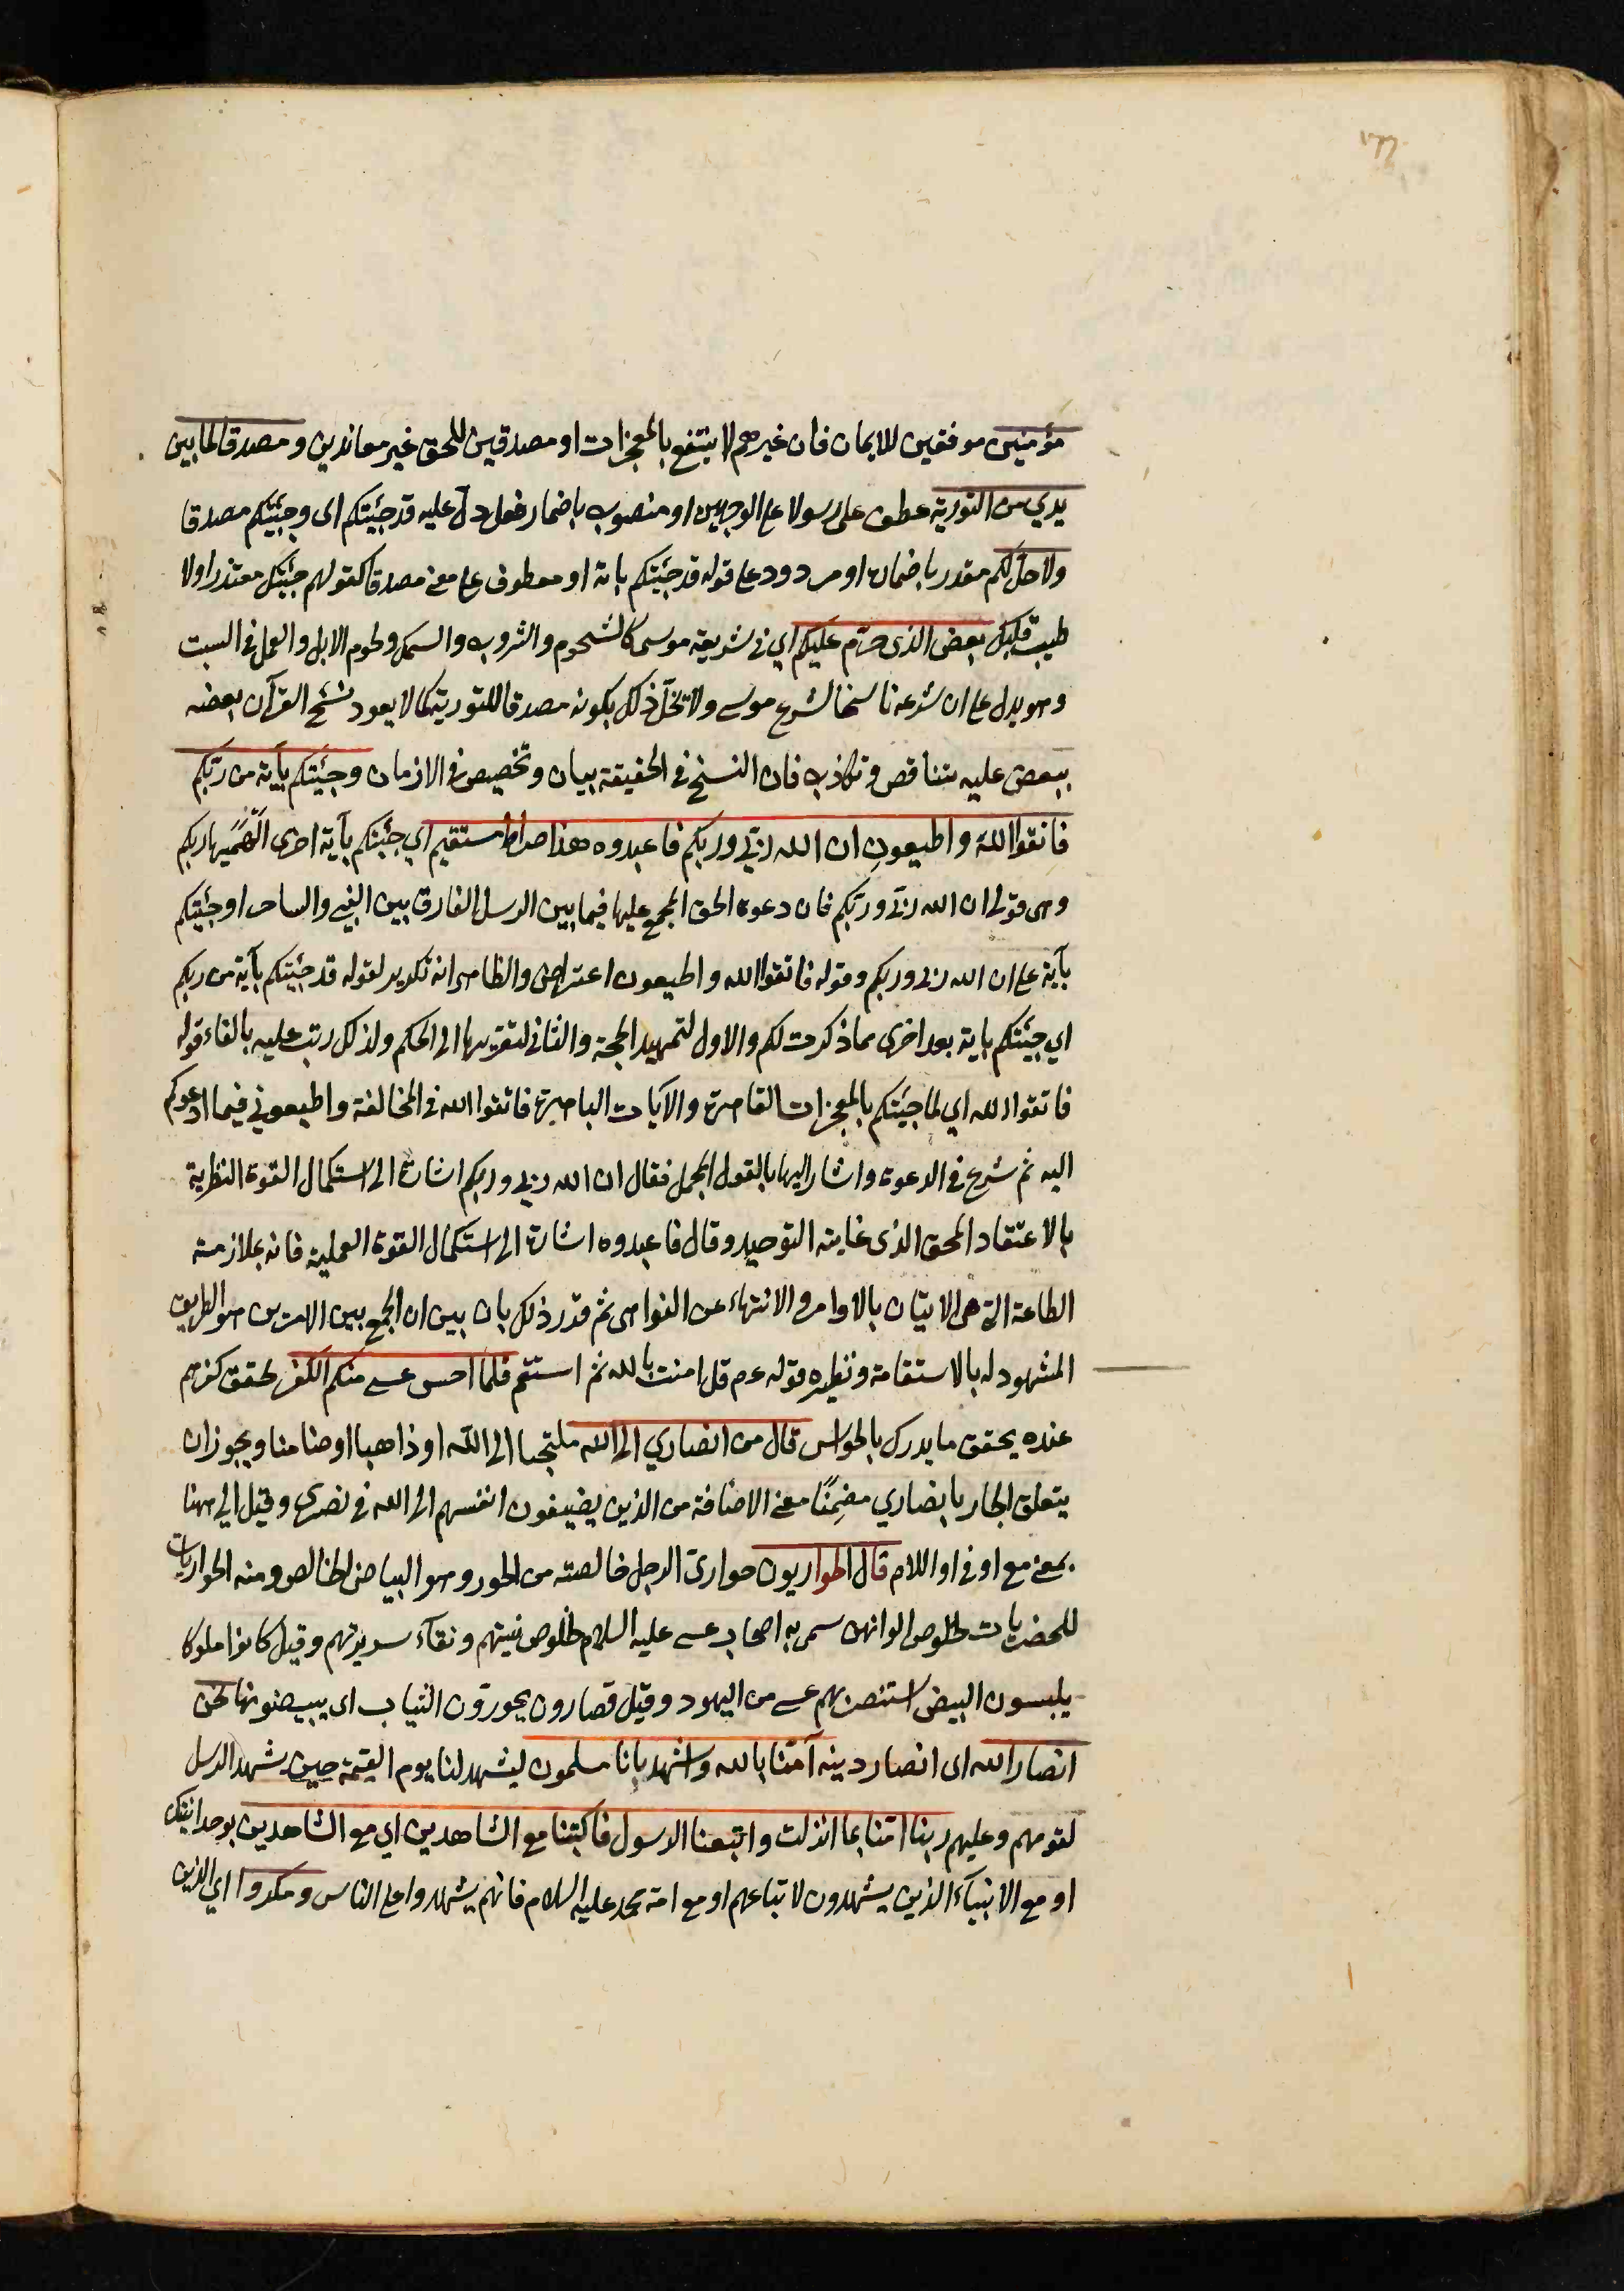 مؤمنين موفقين للايمان فان غيرهم لا ينتفع بالمعجزات او مصدقين للحق غير معاندين ومصدقا لما بين
يدي من التورية عطف على رسولا على الوجهين او منصوب باضمار فعل دل عليه قد جئتكم اى وجئتكم مصدقا
ولاحل لكم مقدر باضمار او مردود على قوله قد جئتكم باية او معطوف على معنى مصدقا كقولهم جئتك معتذرا ولا
طيب قلبك بعض الذى حرم عليكم اي في شريعة موسى كالشحوم والثروب والسمك ولحوم الابل والعمل في السبت
وهو يدل على ان شرعه ناسخا لشرع موسى ولا يخل ذلك بكونه مصدقا للتورية كما لا يعود نسخ القرآن بعضه
ببعض عليه بتناقض وتكاذب فان النسخ في الحقيقة بيان وتخصيص في الازمان وجئتكم بآية من ربكم
فاتقوا الله واطيعون ان الله ربي وربكم فاعبدوه هذا صراط مستقيم اي جئتكم بآية اخرى الهمنيها ربكم
وهى قولى ان الله ربي وربكم فان دعوة الحق المجمع عليها فيما بين الرسل الفارق بين النبي والساحر او جئتكم
بآية على ان الله ربي وربكم وقوله فاتقوا الله واطيعون اعتراض والظاهر انه تكرير لقوله قد جئتكم بآية من ربكم
اي جئتكم باية بعد اخرى مما ذكرت لكم والاول لتمهيد الحجة والثاني لتقريبها الى الحكم ولذلك رتب عليه بالفاء قوله
فاتقوا الله اي لما جئتكم بالمعجزات القاهرة والآيات الباهرة فاتقوا الله في المخالفة واطيعوني فيما ادعوكم
اليه ثم شرع في الدعوة واشار اليها بالقول المجمل فقال ان الله ربي وربكم اشارة الى استكمال القوة النظرية
بالاعتقاد المحق الذى غايته التوحيد وقال فاعبدوه اشارة الى استكمال القوة العملية فانه بملازمة
الطاعة التى هى الاتيان بالاوامر والانتهاء عن النواهى ثم قرر ذلك بان بين ان الجمع بين الامرين هو الطريق
المشهود له بالاستقامة ونظيره قوله عم قل امنت بالله ثم استقم فلما احس عيسى منكم الكفر تحقق كفرهم
عنده يحقق ما يدرك بالحواس قال من انصاري الى الله ملتجئا الى الله او ذاهبا او ضامنا ويجوز ان
يتعلق الجار بانصاري مضمنًا معنى الاضافة من الذين يضيفون انفسهم الى الله في نصرى وقيل الى ههنا
بمعنى مع او في او اللام قال الحواريون حوارى الرجل خالصته من الحور وهو البياض الخالص ومنه الحواريات
للحضريات لخلوص الوانهن سمى به اصحاب عيسى عليه السلام لخلوص نيتهم ونقآء سريرتهم وقيل كانوا ملوكا
يلبسون البيض استنصر بهم عيسى من اليهود وقيل قصارون يحورون الثياب اى يبيضونها نحن
انصار الله اى انصار دينه آمنا بالله واشهد بانا مسلمون ليشهد لنا يوم القيمة حين شهد الرسل
لقومهم وعليهم ربنا امنا بما انزلت واتبعنا الرسول فاكتبنا مع الشاهدين اي مع الشاهدين بوحدانيتك
او مع الانبيآء الذين يشهدون لاتباعهم او مع امة محمد عليه السلام فانهم يشهدوا على الناس ومكروا اي الذين